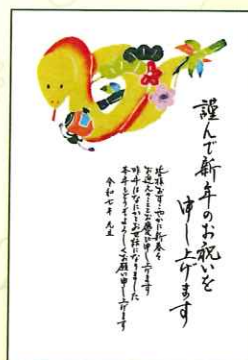 謹んで新年のお祝いを
申し上げます
皆様おすこやかに新春を
お迎えのこととお慶び申し上げます
昨年はなにかとお世話になりました
本年もどうぞよろしくお願い申し上げます
令和七年 元旦